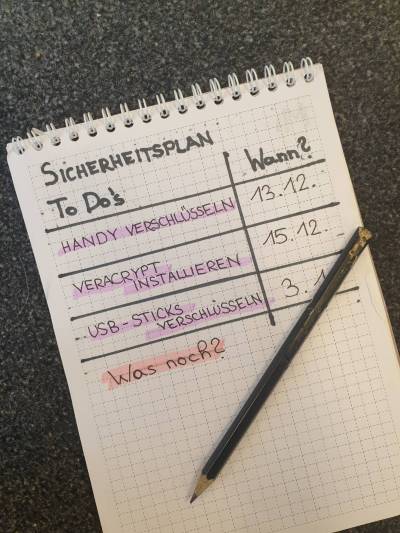 SICHERHEITSPLAN
To Do's Wann?
HANDY VERSCHLÜSSELN 13.12.
VERACRYPT 15.12.
INSTALLIEREN
USB-STICKS 3.1
VERSCHLÜSSELN
Was noch?